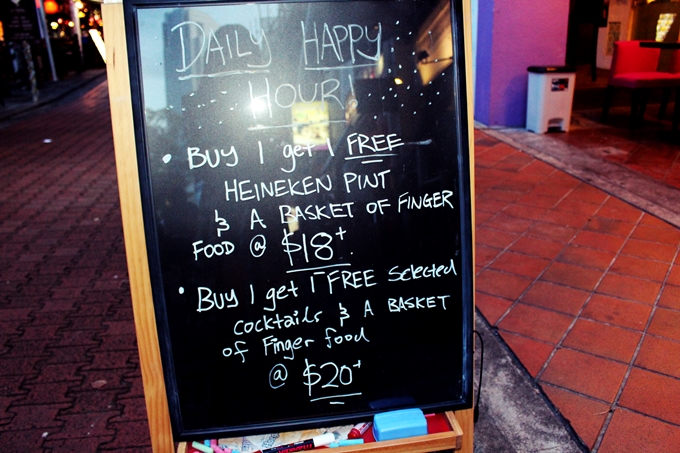 DAILY HAPPY
HOUR!
• BUY 1 get 1 FREE
HEINEKEN PINT
& A BASKET OF FINGER
FOOD @ $18+
• BUY 1 get 1 FREE Selected
cocktails & A BASKET
of Finger food
@ $20+